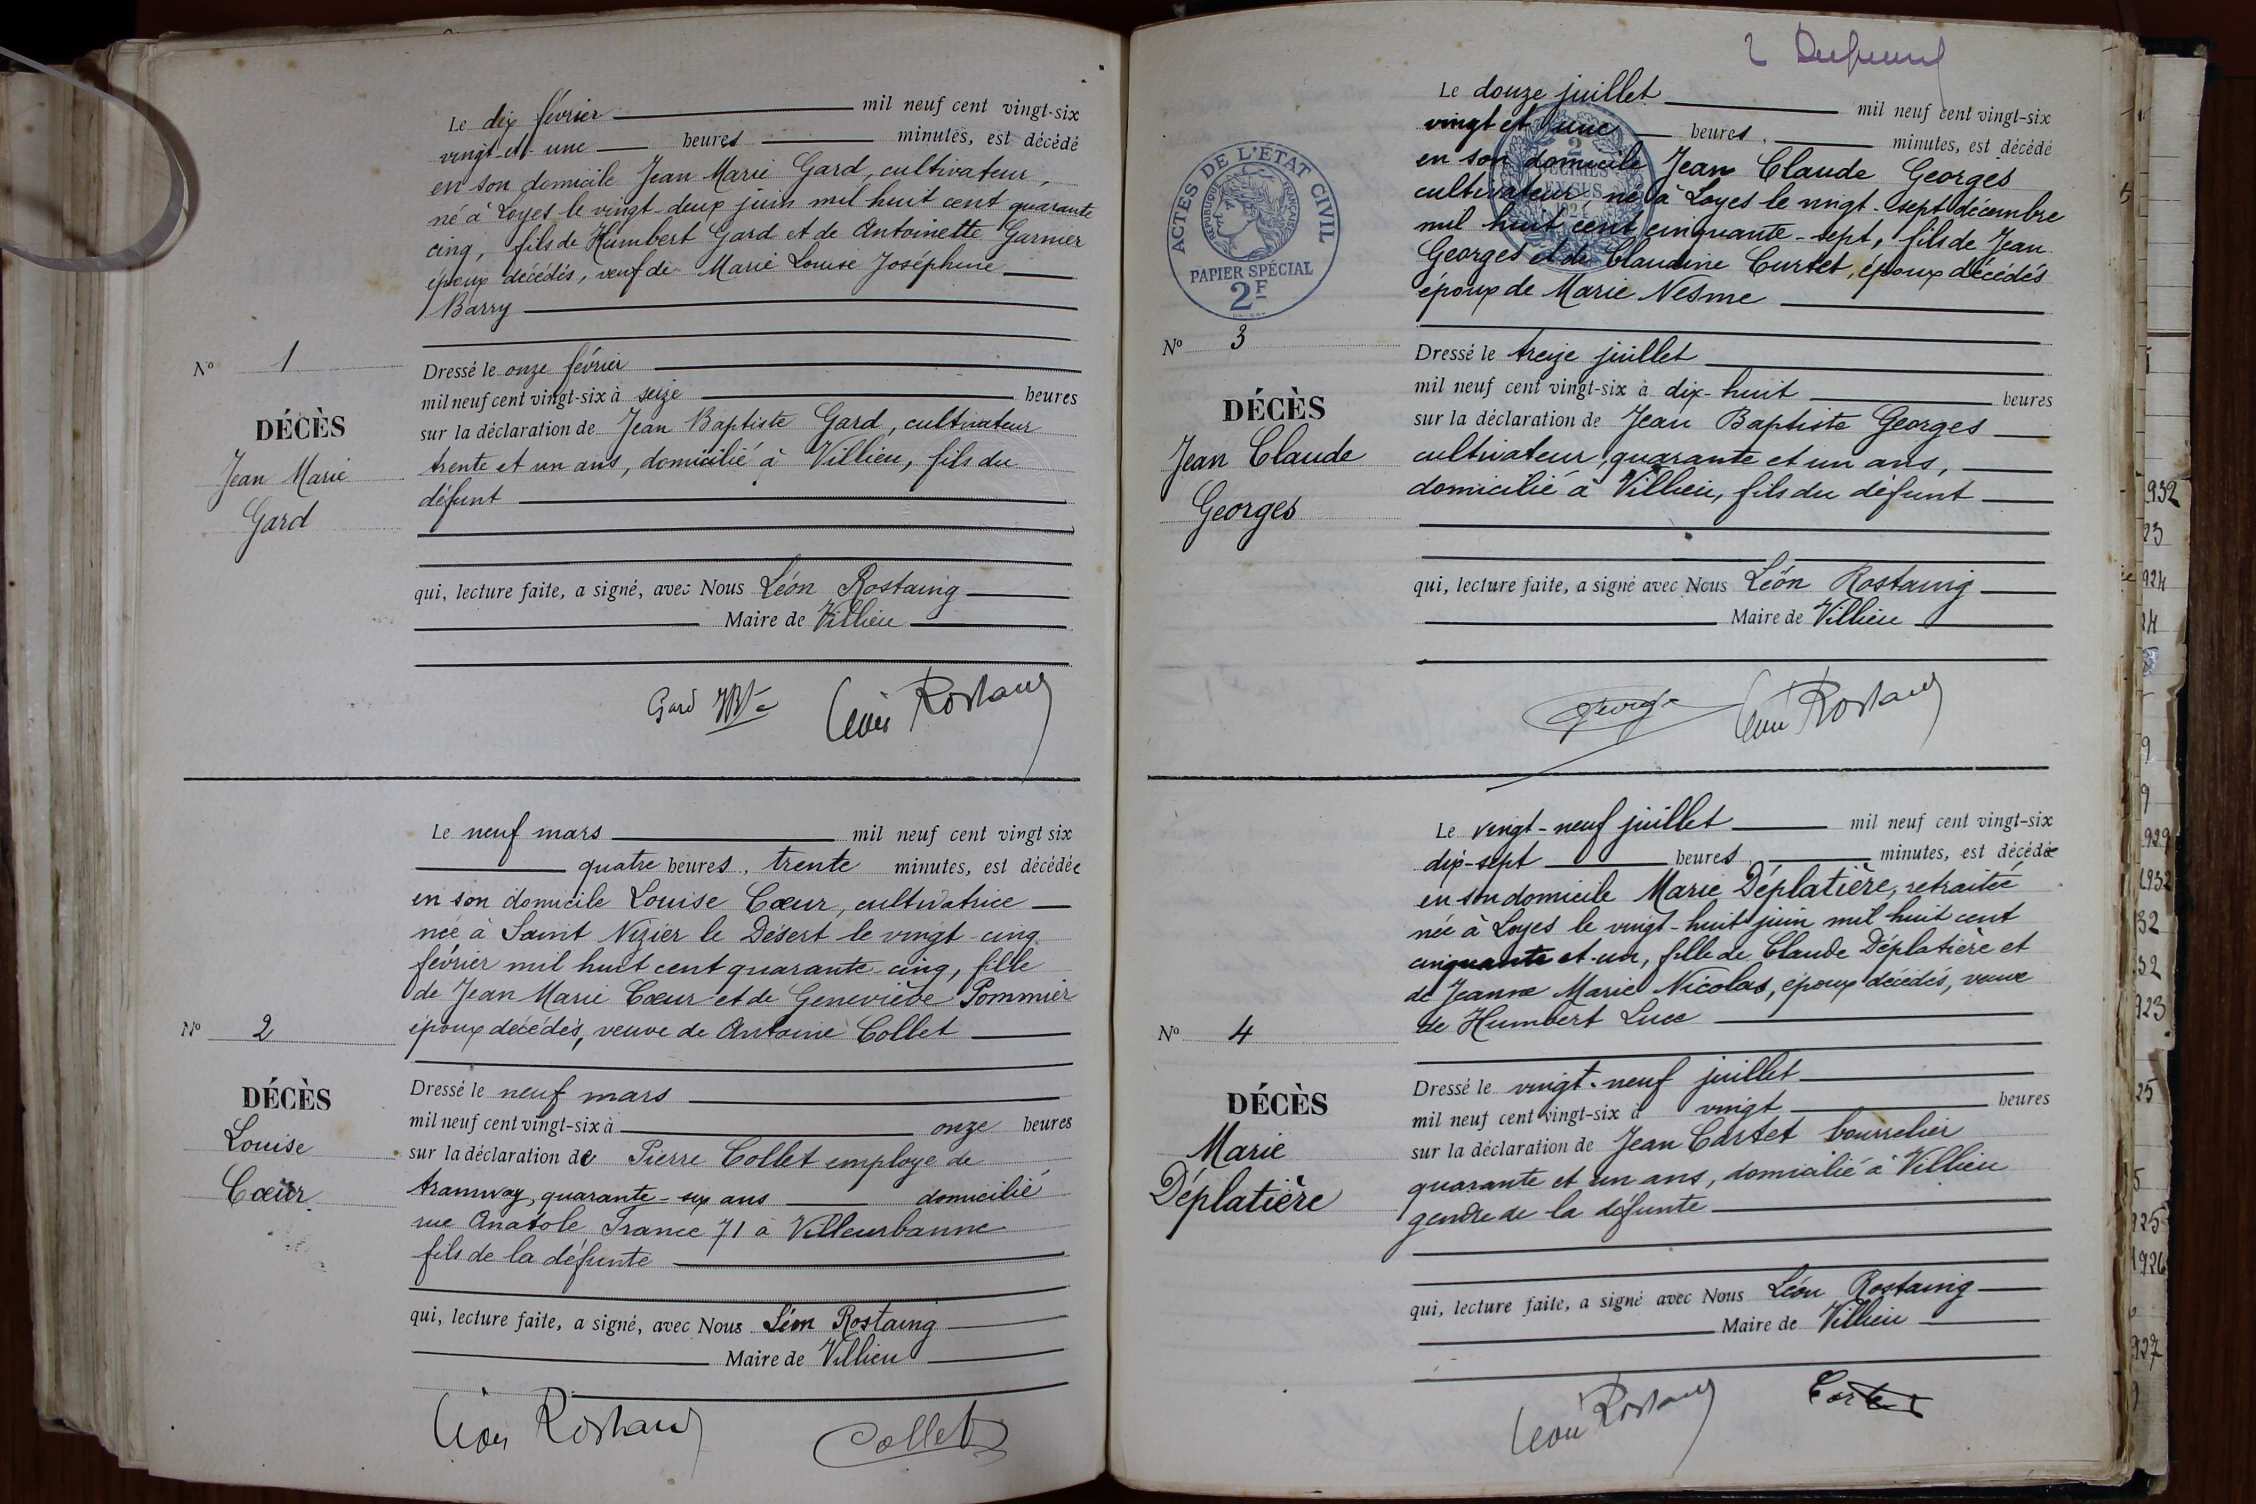 Le dix février mil neuf cent vingt-six
vingt-et-une heures minutes, est décédé
en son domicile Jean Marie Gard, cultivateur,
né à Loyes le vingt-deux juin mil huit cent quarante
cinq, fils de Humbert Gard et de Antoinette Garnier
époux décédés, veuf de Marie Louise Joséphine
Barry
N° 1
DÉCÈS
Jean Marie
Gard
Dressé le onze février
mil neuf cent vingt-six à seize heures
sur la déclaration de Jean Baptiste Gard, cultivateur
trente et un ans, domicilié à Villieu, fils du
défunt
qui, lecture faite, a signé, avec Nous Léon Rostaing
Maire de Villieu
Gard JBte Léon Rostaing
Le neuf mars mil neuf cent vingt six
quatre heures, trente minutes, est décédée
en son domicile Louise Cœur, cultivatrice
née à Saint Nizier le Désert le vingt-cinq
février mil huit cent quarante-cinq, fille
de Jean Marie Cœur et de Geneviève Pommier
époux décédés, veuve de Antoine Collet
N° 2
DÉCÈS
Louise
Cœur
Dressé le neuf mars
mil neuf cent vingt-six à onze heures
sur la déclaration de Pierre Collet employé de
tramway, quarante-six ans domicilié
rue Anatole France 71 à Villeurbanne
fils de la défunte
qui, lecture faite, a signé, avec Nous Léon Rostaing
Maire de Villieu
Léon Rostaing Collet
2
Le douze juillet mil neuf cent vingt-six
vingt et une heures, minutes, est décédé
en son domicile Jean Claude Georges
cultivateur né à Loyes le vingt-sept décembre
mil huit cent cinquante-sept, fils de Jean
Georges et de Claudine Curtet, époux décédés
époux de Marie Nesme
ACTES DE L'ÉTAT CIVIL
RÉPUBLIQUE FRANÇAISE
PAPIER SPÉCIAL
2F
2
DÉCIMES
EN SUS
1924
N° 3
DÉCÈS
Jean Claude
Georges
Dressé le treize juillet
mil neuf cent vingt-six à dix-huit heures
sur la déclaration de Jean Baptiste Georges
cultivateur, quarante et un ans,
domicilié à Villieu, fils du défunt
qui, lecture faite, a signé avec Nous Léon Rostaing
Maire de Villieu
George Léon Rostaing
Le vingt-neuf juillet mil neuf cent vingt-six
dix-sept heures, minutes, est décédée
en son domicile Marie Déplatière, retraitée
née à Loyes le vingt-huit juin mil huit cent
cinquante et-un, fille de Claude Déplatière et
de Jeanne Marie Nicolas, époux décédés, veuve
de Humbert Luce
N° 4
DÉCÈS
Marie
Déplatière
Dressé le vingt-neuf juillet
mil neuf cent vingt-six à vingt heures
sur la déclaration de Jean Cartet bourrelier
quarante et un ans, domicilié à Villieu
gendre de la défunte
qui, lecture faite, a signé avec Nous Léon Rostaing
Maire de Villieu
Léon Rostaing Cartet
932
23
924
24
9
9
929
1932
32
32
923
25
5
925
1926
927